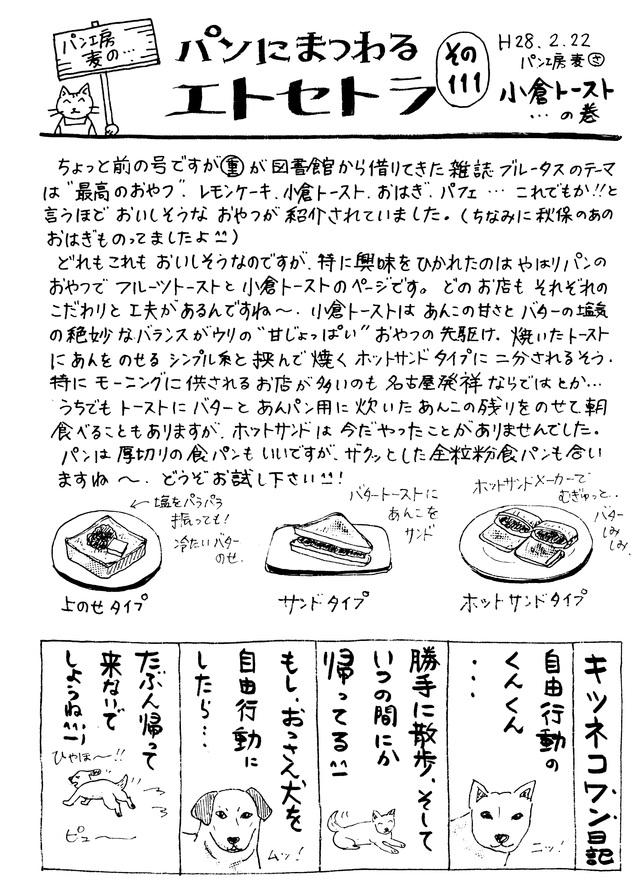 パン工房
麦の…
パンにまつわる
エトセトラ
その
111
H28.2.22
パン工房 麦 さ
小倉トースト
…の巻
ちょっと前の号ですが重が図書館から借りてきた雑誌ブルータスのテーマ
は"最高のおやつ"。レモンケーキ、小倉トースト、おはぎ、パフェ…これでもか!!と
言うほどおいしそうなおやつが紹介されていました。(ちなみに秋保のあの
おはぎものってましたよ^^)
どれもこれもおいしそうなのですが、特に興味をひかれたのはやはりパンの
おやつでフルーツトーストと小倉トーストのページです。どのお店もそれぞれの
こだわりと工夫があるんですね〜。小倉トーストはあんこの甘さとバターの塩気
の絶妙なバランスがウリの"甘じょっぱい"おやつの先駆け。焼いたトースト
にあんをのせるシンプル系と挟んで焼くホットサンドタイプに二分されるそう。
特にモーニングに供されるお店が多いのも名古屋発祥ならではとか…
うちでもトーストにバターとあんパン用に炊いたあんこの残りをのせて朝
食べることもありますが、ホットサンドは今だやったことがありませんでした。
パンは厚切りの食パンもいいですが、ザクッとした全粒粉食パンも合い
ますね〜。どうぞお試し下さい^^!
←塩をパラパラ
振っても!
冷たいバター
のせ。
上のせタイプ
バタートーストに
あんこを
サンド
サンドタイプ
ホットサンドメーカーで
むぎゅっと..
バター
しみ
しみ
ホットサンドタイプ
キツネコワン日記
自由行動の
くんくん
…
ニッ!
勝手に散歩、そして
いつの間にか
帰ってる^^
もし、おっさん犬を
自由行動に
したら…
ムッ!
たぶん帰って
来ないで
しょうね^^;)
ひゃほ〜!!
ピュ——